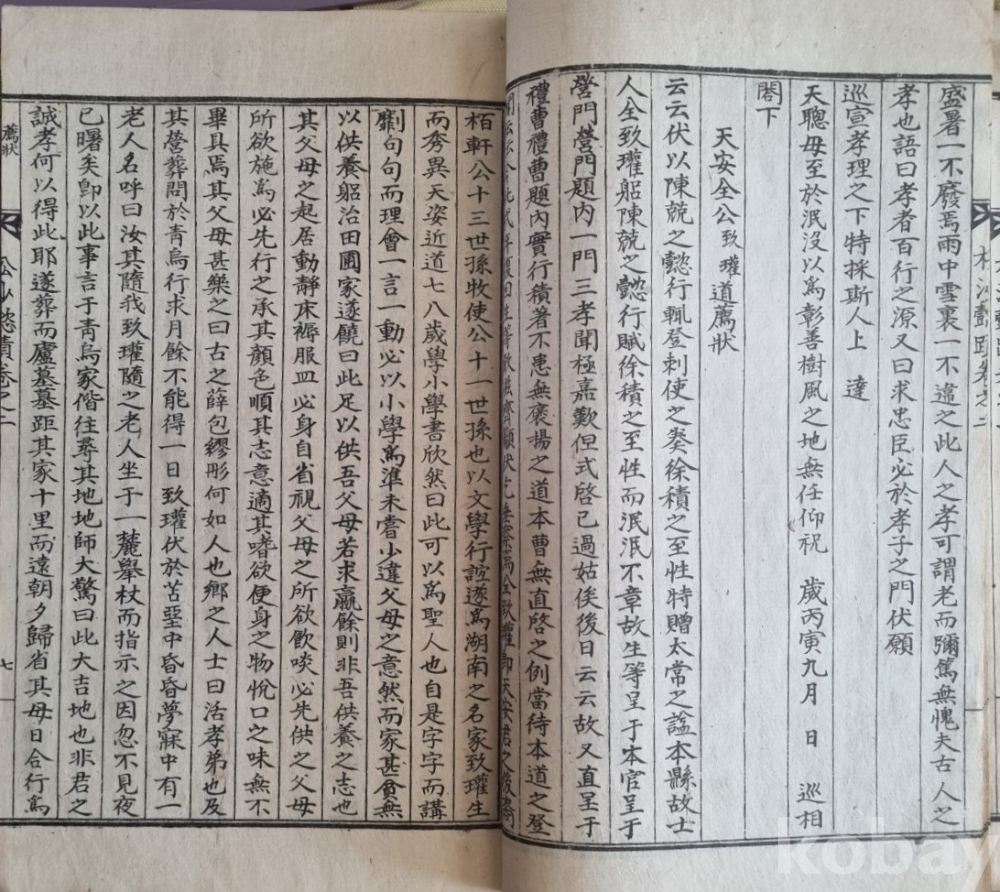 盛暑一不廢焉雨中雪裏一不違之此人之孝可謂老而彌篤無愧夫古人之
孝也語曰孝者百行之源又曰求忠臣必於孝子之門伏願
巡宣孝理之下特採斯人上 達
天聰毋至於泯沒以爲彰善樹風之地無任仰祝 歲丙寅九月 日 巡相
閤下
天安全公致瓘道薦狀
云云伏以陳兢之懿行輒登刺使之奏徐積之至性特贈太常之謚本縣故士
人全致瓘躬陳兢之懿行賦徐積之至性而泯泯不章故生等呈于本官呈于
營門營門題內一門三孝聞極嘉歎但式啓已過姑俟後日云云故又直呈于
禮曹禮曹題內實行積著不患無褒揚之道本曹無直啓之例當待本道之登
栢軒公十三世孫牧使公十一世孫也以文學行誼遂爲湖南之名家致瓘生
而秀異天姿近道七八歲學小學書欣然曰此可以爲聖人也自是字字而講
劘句句而理會一言一動必以小學爲準未嘗小違父母之意然而家甚貧無
以供養躬治田圃家遂饒曰此足以供吾父母若求贏餘則非吾供養之志也
其父母之起居動靜床褥服皿必身自省視父母之所欲飮啖必先供之父母
所欲施爲必先行之承其顏色順其志意適其嗜欲便身之物悅口之味無不
畢具焉其父母甚樂之曰古之薛包繆肜何如人也鄉之人士曰活孝弟也及
其營葬問於青烏行求月餘不能得一日致瓘伏於苫堊中昏昏夢寐中有一
老人名呼曰汝其隨我致瓘隨之老人坐于一麓擧杖而指示之因忽不見夜
已曙矣卽以此事言于青烏家偕往尋其地地師大驚曰此大吉地也非君之
誠孝何以得此耶遂葬而廬墓墓距其家十里而遠朝夕歸省其母日合行爲
薦狀
七
kobay